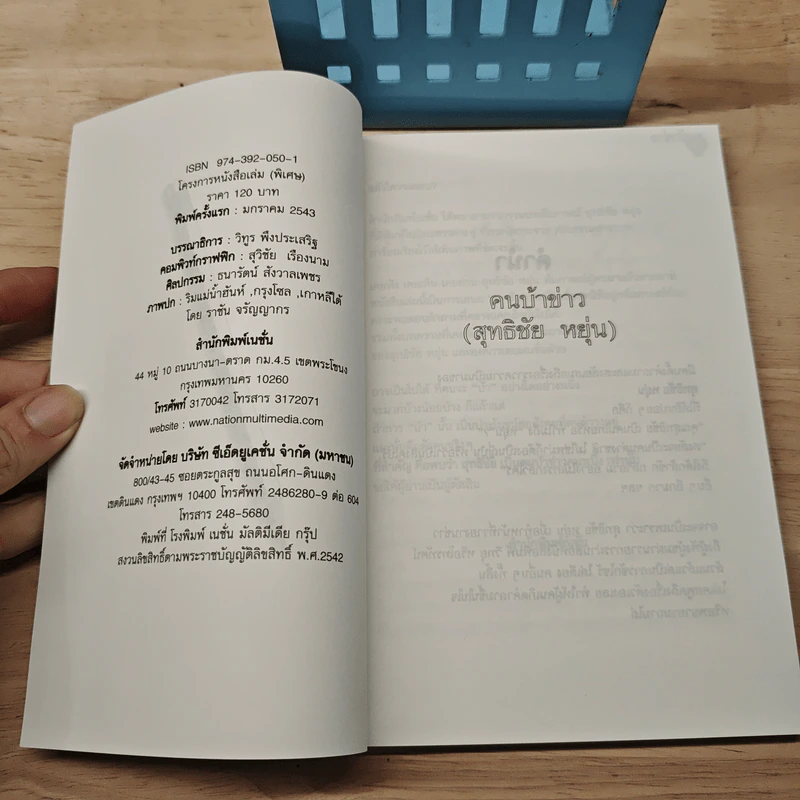 ISBN 974-392-050-1
โครงการหนังสือเล่ม (พิเศษ)
ราคา 120 บาท
พิมพ์ครั้งแรก : มกราคม 2543
บรรณาธิการ : วิฑูร พึงประเสริฐ
คอมพิวท์กราฟฟิก : สุวิชัย เรืองนาม
ศิลปกรรม : ธนารัตน์ สังวาลเพชร
ภาพปก : ริมแม่น้ำฮันห์ ,กรุงโซล ,เกาหลีใต้
โดย ราชัน จรัญญากร
สำนักพิมพ์เนชั่น
44 หมู่ 10 ถนนบางนา-ตราด กม.4.5 เขตพระโขนง
กรุงเทพมหานคร 10260
โทรศัพท์ 3170042 โทรสาร 3172071
website : www.nationmultimedia.com
จัดจำหน่ายโดย บริษัท ซีเอ็ดยูเคชั่น จำกัด (มหาชน)
800/43-45 ซอยตระกูลสุข ถนนอโศก-ดินแดง
เขตดินแดง กรุงเทพฯ 10400 โทรศัพท์ 2486280-9 ต่อ 604
โทรสาร 248-5680
พิมพ์ที่ โรงพิมพ์ เนชั่น มัลติมีเดีย กรุ๊ป
สงวนลิขสิทธิ์ตามพระราชบัญญัติลิขสิทธิ์ พ.ศ.2542
คนบ้าข่าว
(สุทธิชัย หยุ่น)